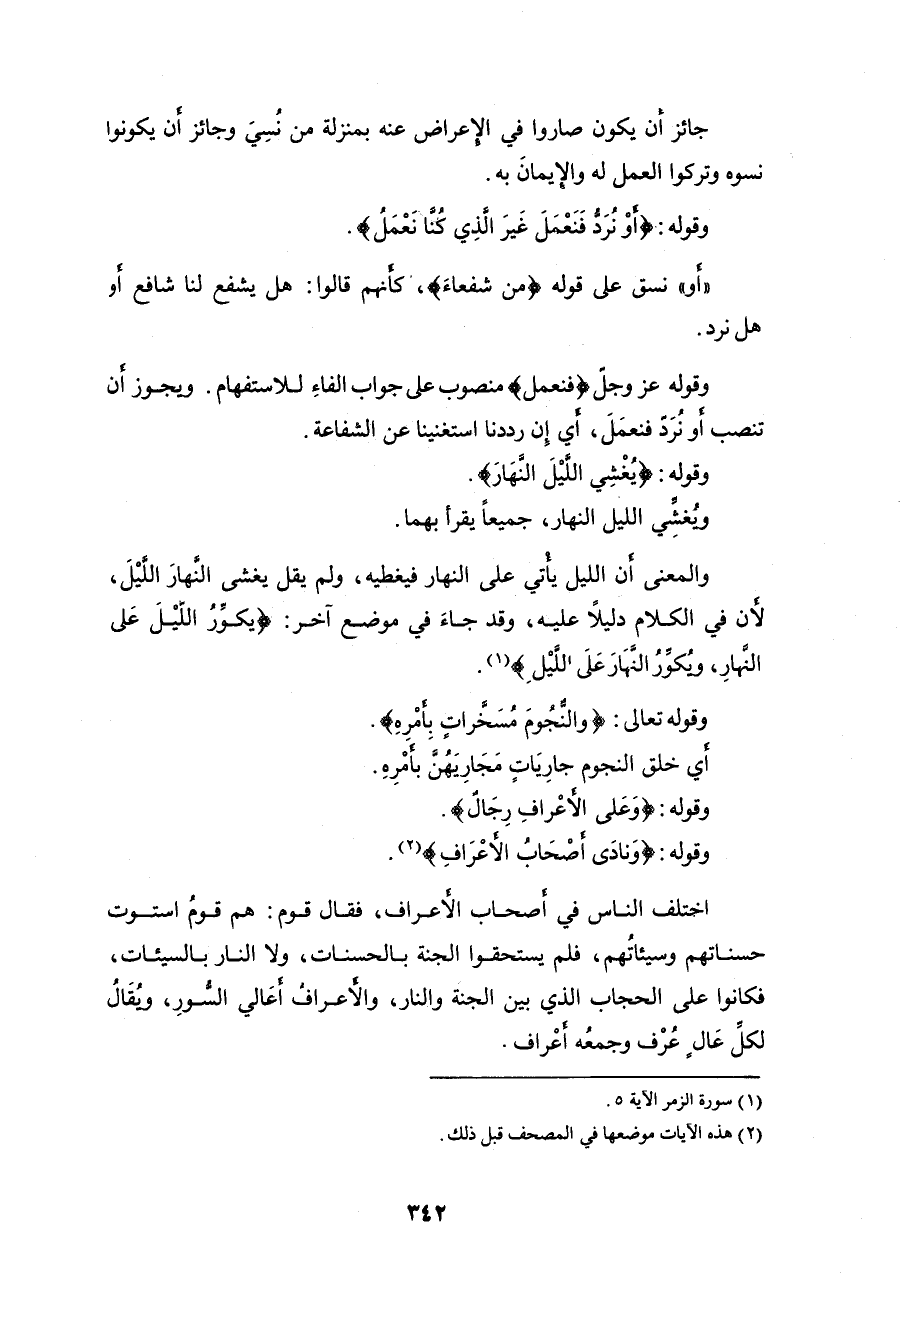 جائز أن يكون صاروا في الإعراض عنه بمنزلة من نُسِيَ وجائز أن يكونوا
نسوه وتركوا العمل له والإيمانَ به.
وقوله: ﴿أَوْ نُرَدُّ فَنَعْمَلَ غَيرَ الَّذِي كُنَّا نَعْمَلُ﴾.
«أو» نسق على قوله ﴿من شفعاءَ﴾، كأنهم قالوا: هل يشفع لنا شافع أو
هل نرد.
وقوله عز وجلّ ﴿فنعمل﴾ منصوب على جواب الفاءِ للاستفهام. ويجوز أن
تنصب أو نُرَدّ فنعمَلَ، أي إن رددنا استغنينا عن الشفاعة.
وقوله: ﴿يُغْشِي اللَّيْلَ النَّهَارَ﴾.
ويُغشِّي الليل النهار، جميعاً يقرأ بهما.
والمعنى أن الليل يأتي على النهار فيغطيه، ولم يقل يغشى النَّهارَ اللَّيْلَ،
لأن في الكلام دليلًا عليه، وقد جاءَ في موضع آخر: ﴿يكوِّرُ اللَّيْلَ عَلى
النَّهارِ، ويُكوِّرُ النَّهَارَ عَلَى اللَّيْلِ﴾(١).
وقوله تعالى: ﴿والنُّجُومَ مُسَخَّراتٍ بِأَمْرِهِ﴾.
أي خلق النجوم جارِيَاتٍ مَجَارِيَهُنَّ بأَمْرِهِ.
وقوله: ﴿وَعَلى الأَعْرافِ رِجَالٌ﴾.
وقوله: ﴿وَنادَى أَصْحَابُ الأَعْرَافِ﴾(٢).
اختلف الناس في أصحاب الأعراف، فقال قوم: هم قومُ استوت
حسناتهم وسيئاتُهم، فلم يستحقوا الجنة بالحسنات، ولا النار بالسيئات،
فكانوا على الحجاب الذي بين الجنة والنار، والأعرافُ أعَالي السُّورِ، ويُقَالُ
لكلِّ عَالٍ عُرْف وجمعُه أَعْراف.
(١) سورة الزمر الآية ٥.
(٢) هذه الآيات موضعها في المصحف قبل ذلك.
٣٤٢